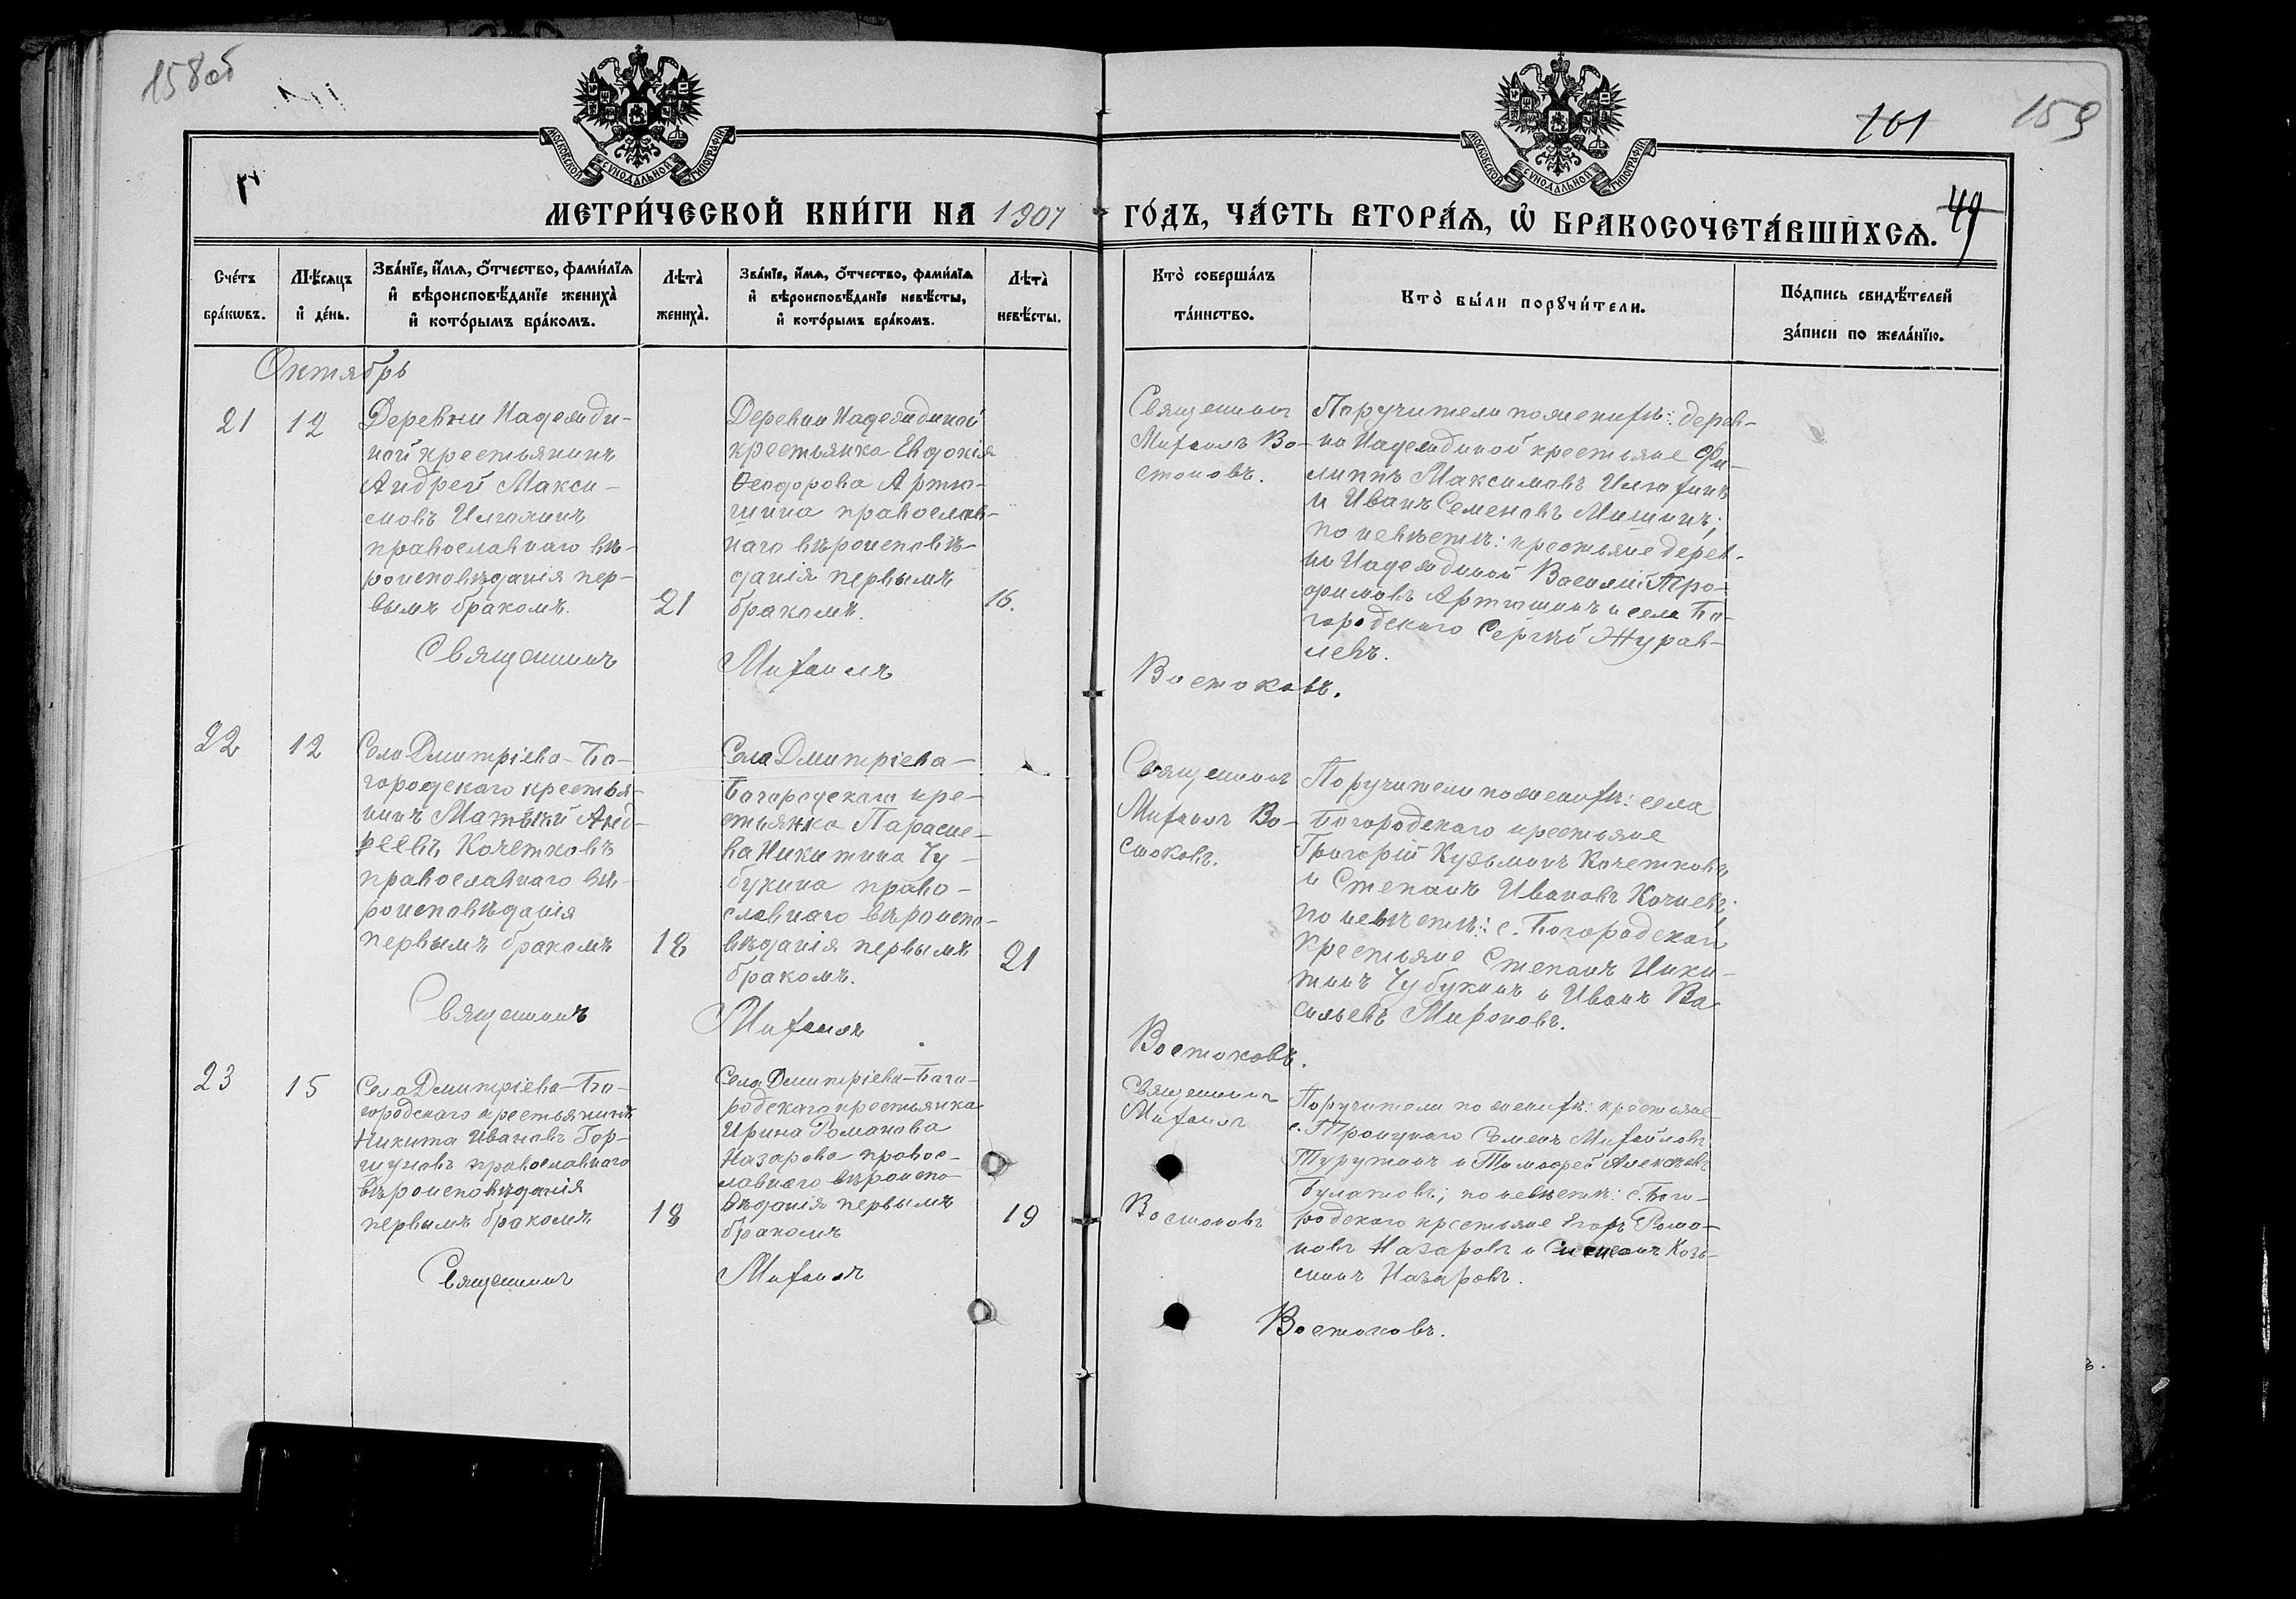 158об
101
159
МОСКОВСКОЙ СѴНОДАЛЬНОЙ ТИПОГРАФІИ
МОСКОВСКОЙ СѴНОДАЛЬНОЙ ТИПОГРАФІИ
МЕТРИ́ЧЕСКОЙ КНИ́ГИ НА 1907
ГО́ДЪ, ЧА́СТЬ ВТОРА́Ѧ, Ѽ БРАКОСОЧЕТА́ВШИХСѦ.
49
Сче́тъ бра́кѡвъ.
Мѣ́сяцъ и҆ де́нь.
Зва́нїе, и҆́мѧ, ѻ҆́тчество, фами́лїѧ и҆ вѣроисповѣ́данїе жениха̀ и҆ кото́рымъ бра́комъ.
Лѣта̀ жениха̀.
Зва́нїе, и҆́мѧ, ѻ҆́тчество, фами́лїѧ и҆ вѣроисповѣ́данїе невѣ́сты, и҆ кото́рымъ бра́комъ.
Лѣта̀ невѣ́сты.
Кто̀ соверша́лъ та́инство.
Кто̀ бы́ли порꙋчи́тели.
По́дпись свидѣ́телей за́писи по жела́нїю.
Октябрь
21
12
Деревни Надежди-
ной крестьянинъ
Андрей Макси-
мовъ Илюхинъ
православнаго вѣ-
роисповѣданія пер-
вымъ бракомъ.
21
Деревни Надеждиной
крестьянка Евдокія
Ѳеодорова Артю-
шина православ-
наго вѣроисповѣ-
данія первымъ
бракомъ.
16.
Священникъ
Михаилъ Во-
стоковъ.
Поручители по женихѣ: дерев-
ни Надеждиной крестьяне Фи-
липпъ Максимовъ Илюхинъ
и Иванъ Семеновъ Мишинъ;
по невѣстѣ: крестьяне дерев-
ни Надеждиной Василій Тро-
фимовъ Артюшинъ и села Бо-
городскаго Сергѣй Журав-
левъ.
Священникъ
Михаилъ
Востоковъ.
22
12
Села Дмитріева-Бо-
городскаго крестья-
нинъ Матвѣй Анд-
реевъ Кочетковъ
православнаго вѣ-
роисповѣданія
первымъ бракомъ
18
Села Дмитріева-
Богородскаго кре-
стьянка Параске-
ва Никитина Чу-
букина право-
славнаго вѣроиспо-
вѣданія первымъ
бракомъ.
21
Священникъ
Михаилъ Во-
стоковъ.
Поручители по женихѣ: села
Богородскаго крестьяне
Григорій Кузьминъ Кочетковъ
и Степанъ Ивановъ
по невѣстѣ: с. Богородскаго
крестьяне Степанъ Ники-
тинъ Чубукинъ и Иванъ Ва
сильевъ Мироновъ.
Священникъ
Михаилъ
Востоковъ.
23
15
Села Дмитріева-Бо-
городскаго крестьянинъ
Никита Ивановъ Гор-
шуновъ православнаго
вѣроисповѣданія
первымъ бракомъ
18
Села Дмитріева-Бого-
родскаго крестьянка
Ирина Романова
Назарова правос-
лавнаго вѣроиспо
вѣданія первымъ
бракомъ
19
Священникъ
Михаилъ
Востоковъ
Поручители по женихѣ: крестьяне
с. Троицкаго Семенъ Михайловъ
Турутинъ и Тимофей Алексѣевъ
Булатовъ; по невѣстѣ: с. Бого-
родскаго крестьяне Егоръ Рома-
новъ Назаровъ и Степанъ Козь-
минъ Назаровъ.
Священникъ
Михаилъ
Востоковъ.